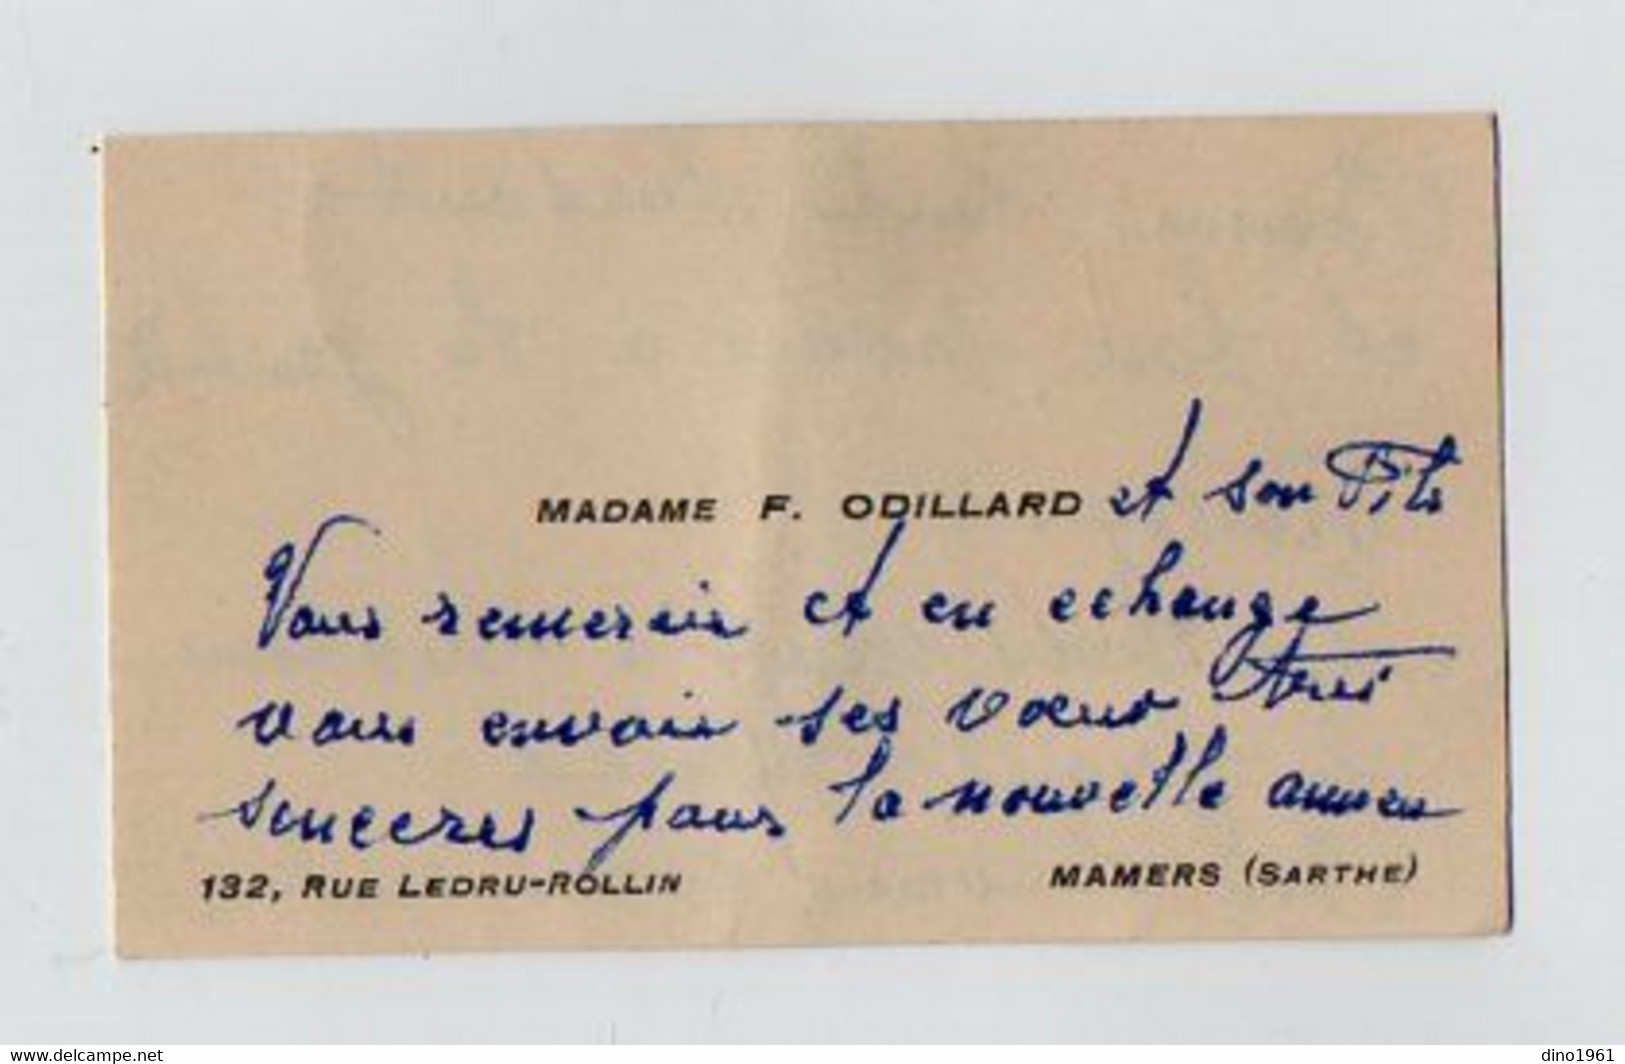 MADAME F. ODILLARD et son Fils
Vous remercie et en echange
vous envoie ses voeux Tres
sinceres pour la nouvelle annee
132, RUE LEDRU-ROLLIN MAMERS (SARTHE)
https://www.delcampe.net
dino1961